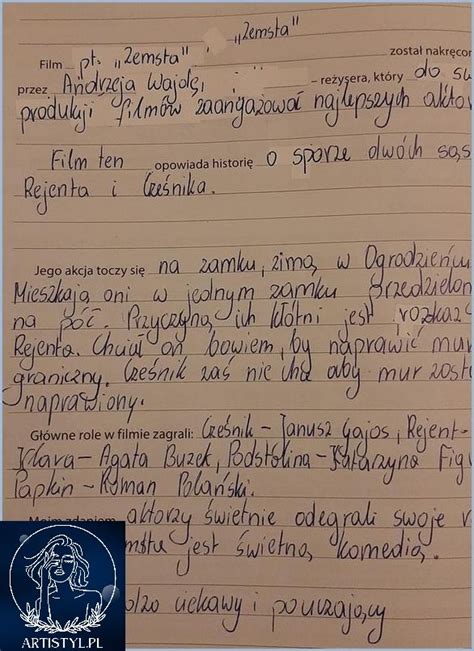 „Zemsta”
Film pt. „Zemsta” został nakręcon
przez Andrzeja Wajdę, – reżysera, który do su
produkcji filmów zaangażował najlepszych akto
Film ten opowiada historię o sporze dwóch są
Rejenta i Cześnika.
Jego akcja toczy się na zamku, zimą, w Ogrodzieńcu
Mieszkają oni w jednym zamku przedzielon
na pół. Przyczyną ich kłótni jest rozkaz
Rejenta. Chciał on bowiem, by naprawić mur
graniczny. Cześnik zaś nie chce aby mur zost
naprawiony.
Główne role w filmie zagrali: Cześnik – Janusz Gajos, Rejent –
Klara – Agata Buzek, Podstolina – Katarzyna Fig
Papkin – Roman Polański.
Moim zdaniem aktorzy świetnie odegrali swoje r
mstu jest świetną komedią.
ciekawy i pouczający
ARTISTYL.PL